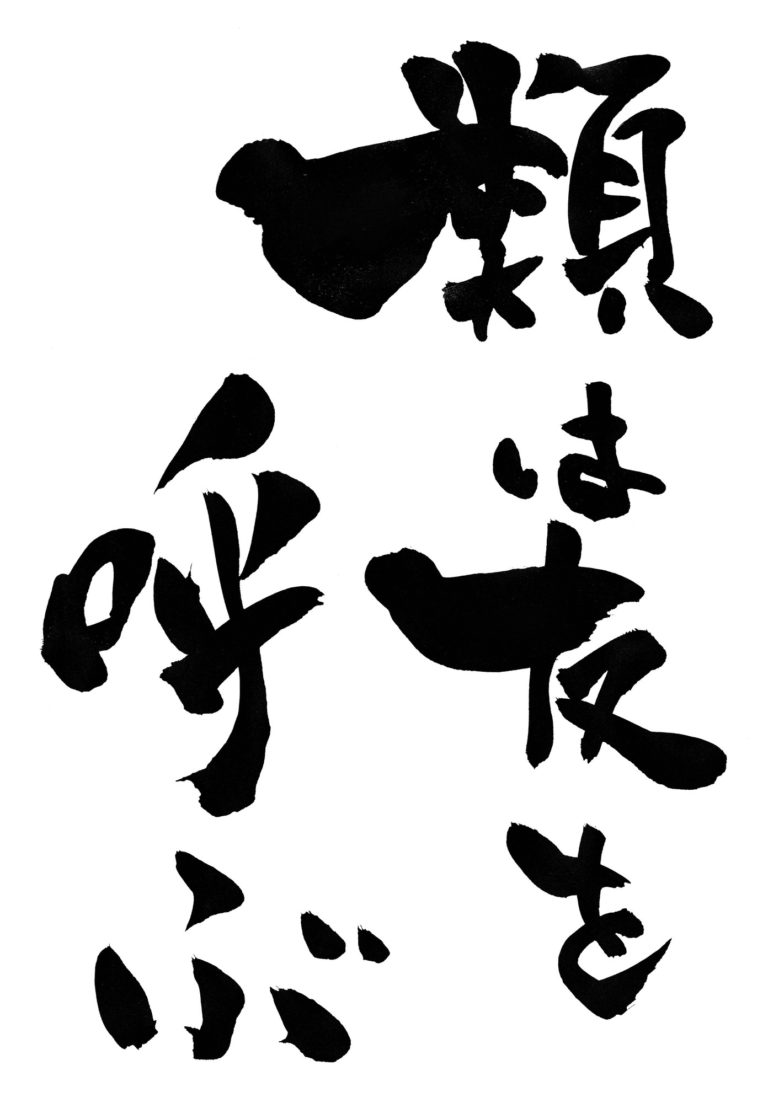 類は友を
呼ぶ